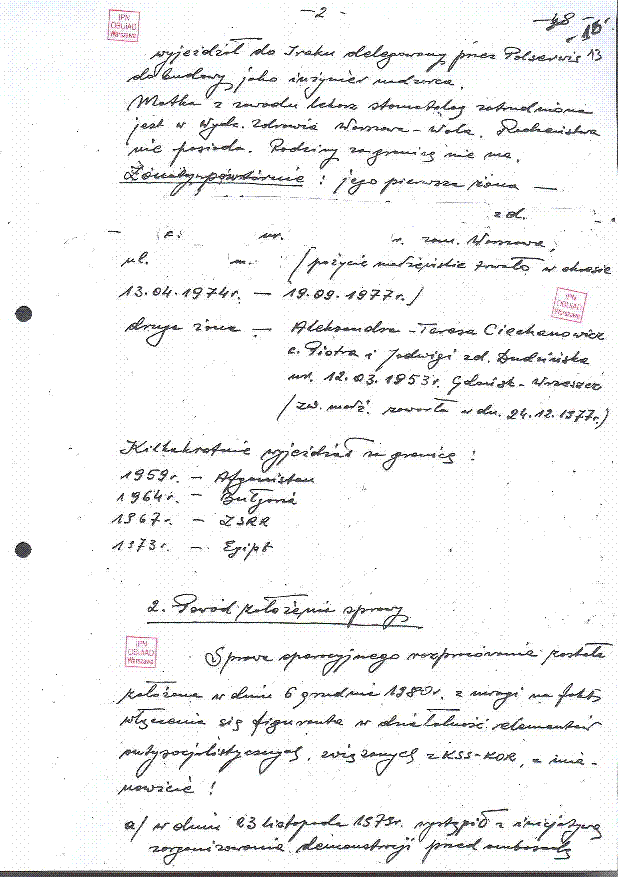 - 2 -
48
IPN
OBUiAD
Warszawa
wyjeżdżał do Iraku delegowany przez Polserwis 13
do budowy jako inżynier nadzorca.
Matka z zawodu lekarz stomatolog zatrudniona
jest w Wydz. Zdrowia Warszawa-Wola. Rodzeństwa
nie posiada. Rodziny zagranicą nie ma.
Żonaty-powtórnie : jego pierwsza żona —
z d.
c. ur. r. zam. Warszawa,
ul. m. /pożycie małżeńskie trwało w okresie
13.04.1974r. — 19.09.1977r./
IPN
OBUiAD
Warszawa
druga żona — Aleksandra-Teresa Ciechanowicz
c. Piotra i Jadwigi zd. Budzińska
ur. 12.03.1953r. Gdańsk-Wrzeszcz
/zw. małż. zawarła w dn. 24.12.1977r./
Kilkakrotnie wyjeżdżał za granicę :
1959r. — Afganistan
1964r. — Bułgaria
1967r. — ZSRR
1973r. — Egipt
2. Powód założenia sprawy
IPN
OBUiAD
Warszawa
Sprawa operacyjnego rozpracowania została
założona w dniu 6 grudnia 1980r. z uwagi na fakt
włączenia się figuranta w działalność elementów
antysocjalistycznych, związanych z KSS-KOR, a mia-
nowicie :
a/ w dniu 23 listopada 1979r. wystąpił z inicjatywą
zorganizowania demonstracji przed ambasadą